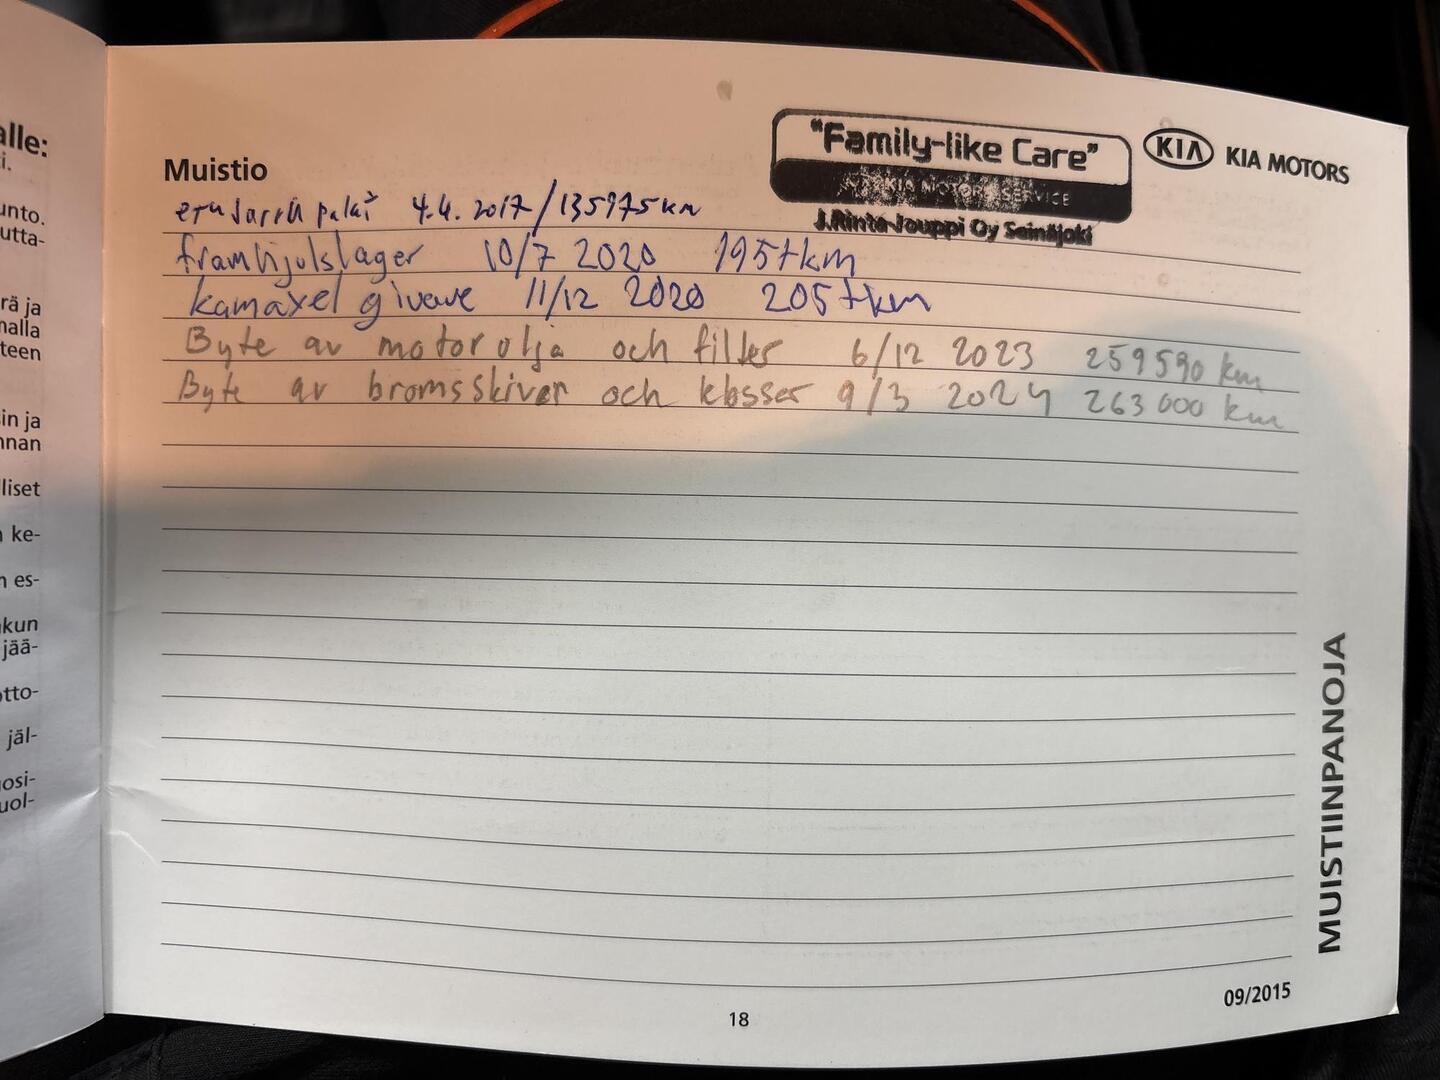 alle:
i.
unto.
utta-
rä ja
nalla
teen
sin ja
nnan
lliset
n ke-
n es-
kun
jää-
otto-
jäl-
osi-
uol-
"Family-like Care"
KIA MOTORS SERVICE
J.Rinta-Jouppi Oy Seinäjoki
KIA KIA MOTORS
Muistio
etujarrupalat 4.4.2017/135975km
framhjulslager 10/7 2020 195tkm
kamaxel givare 11/12 2020 205tkm
Byte av motorolja och filter 6/12 2023 259590 km
Byte av bromsskivor och klosser 9/3 2024 263000 km
MUISTIINPANOJA
09/2015
18